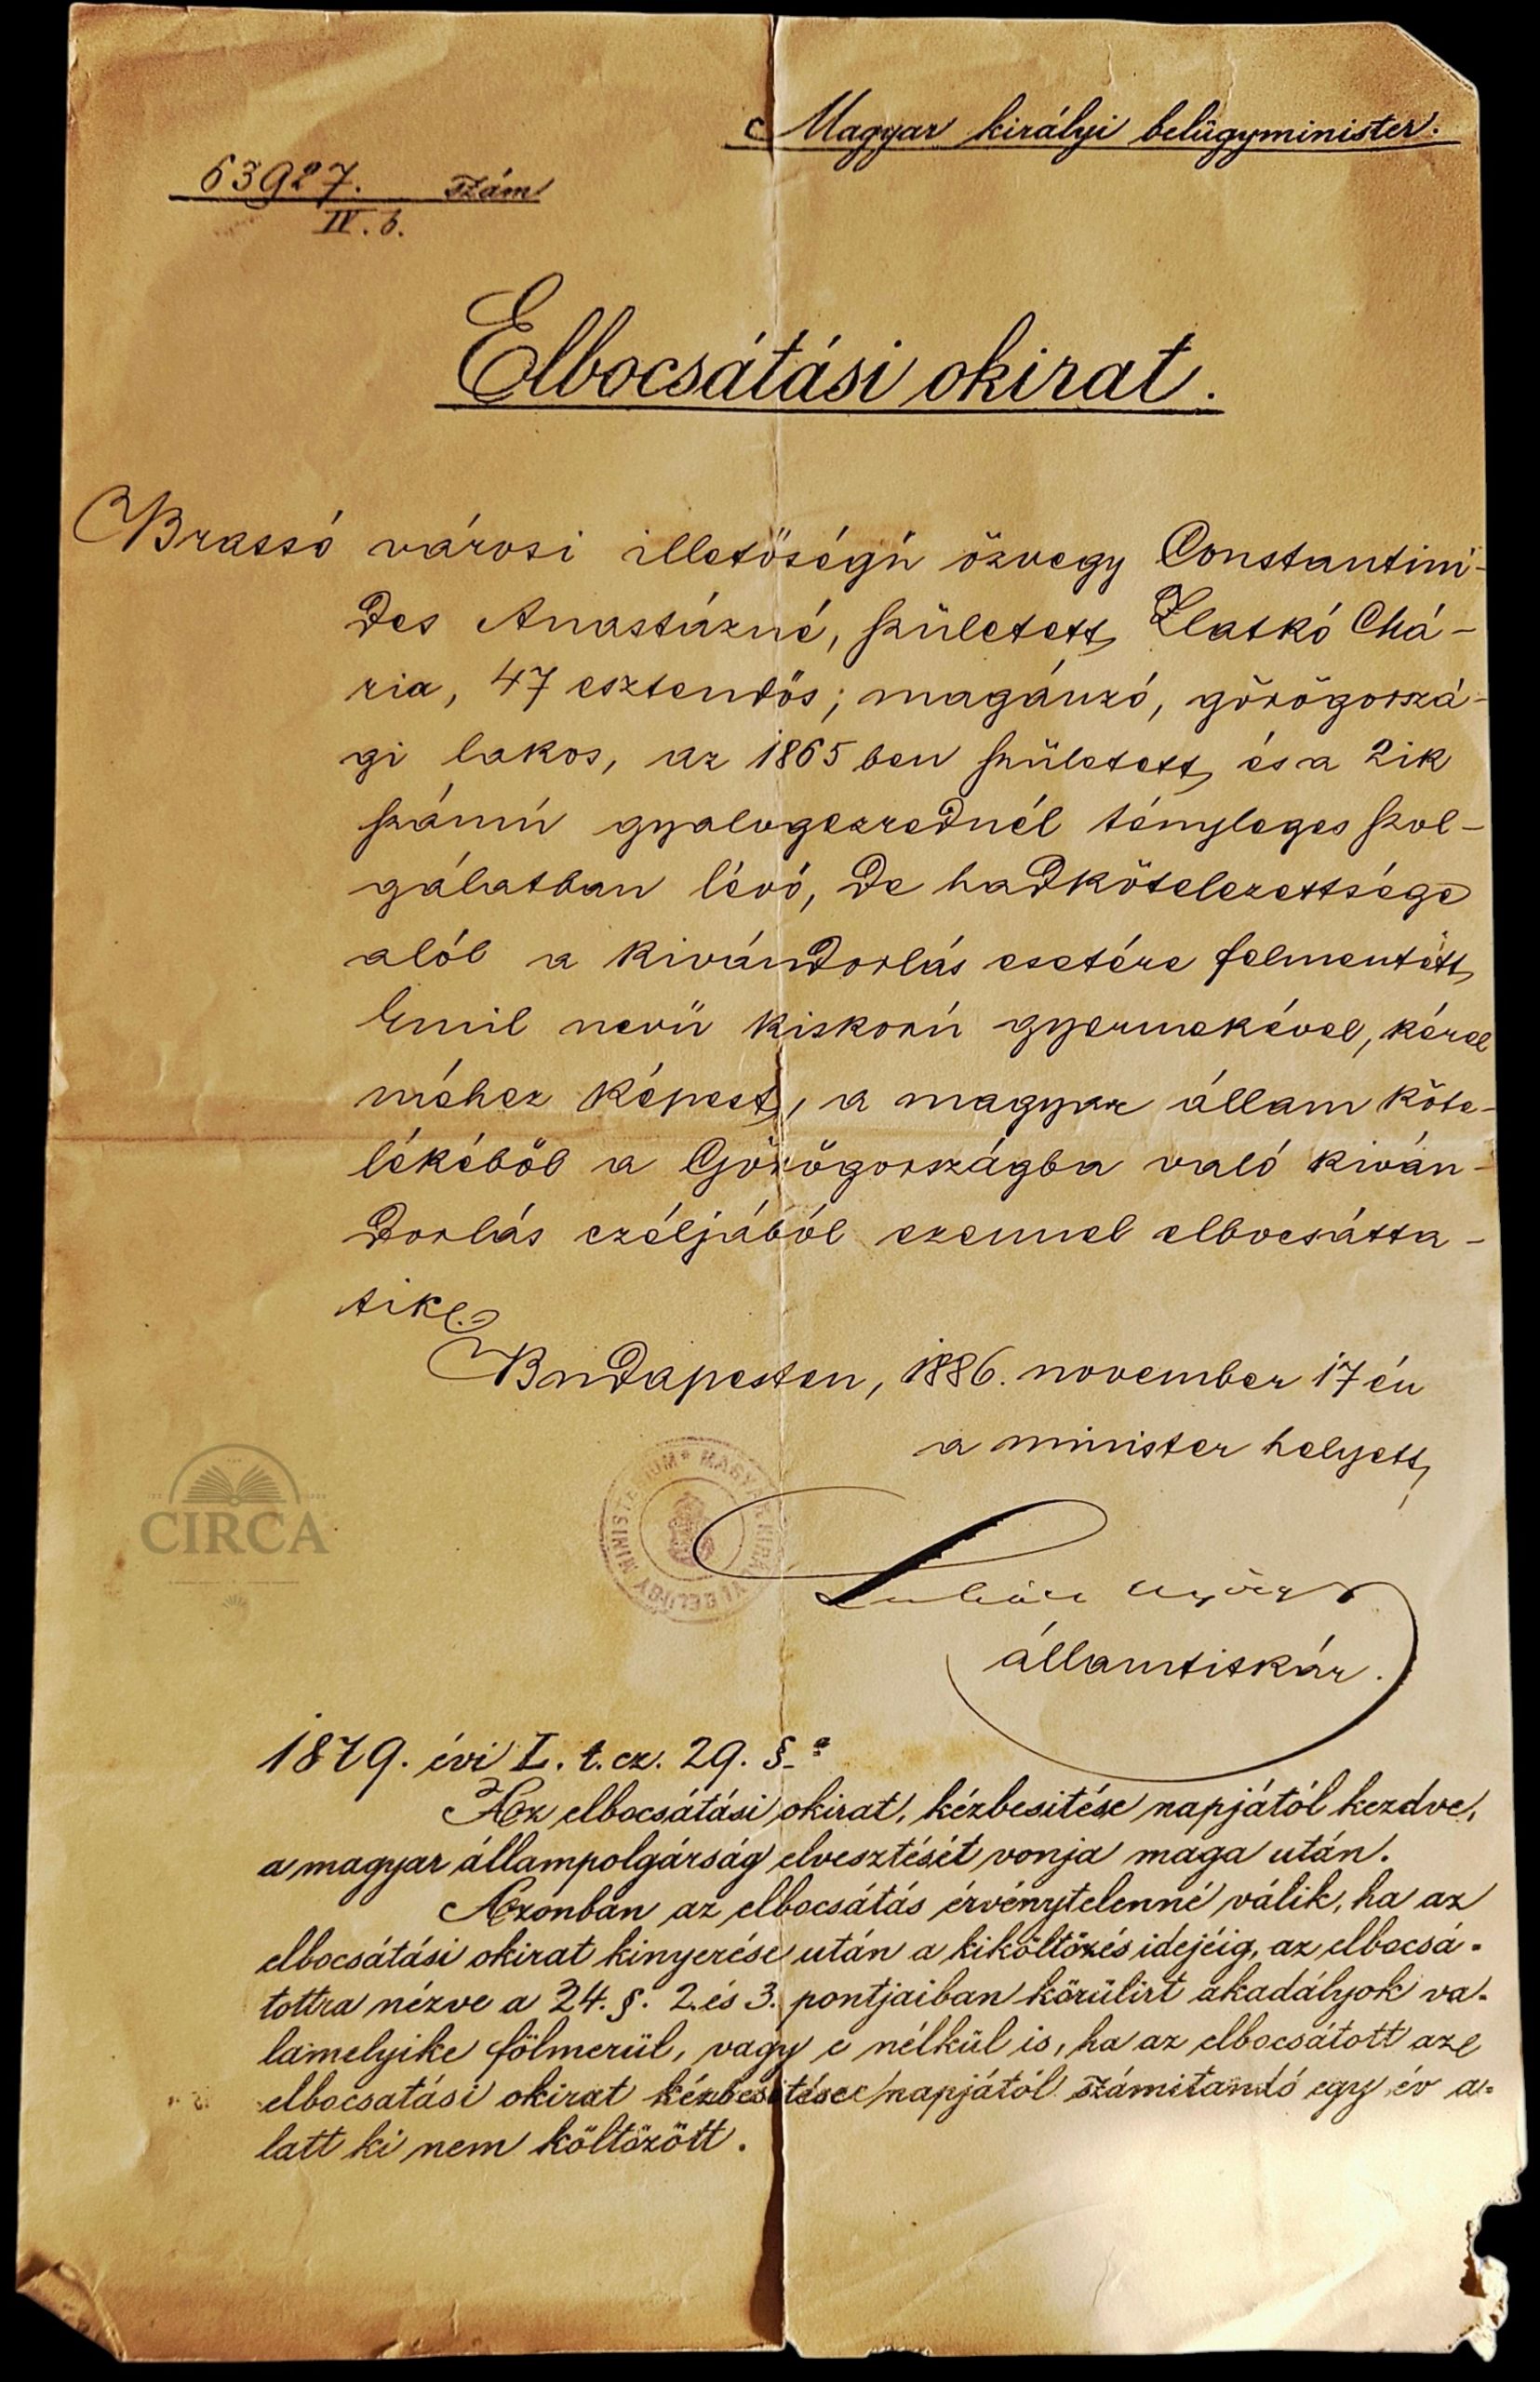 Magyar királyi belügyminister.
63927. szám
IV. b.
Elbocsátási okirat.
Brassó városi illetőségű özvegy Constantini-
des Anastázné, született Zlatkó Chá-
ria, 47 esztendős; magánzó, görögorszá-
gi lakos, az 1865 ben született és a 2ik
számú gyalogezrednél tényleges szol-
gálatban lévő, de hadkötelezettsége
alól a kivándorlás esetére felmentett
Emil nevü kiskorú gyermekével, kérel
méhez képest, a magyar állam köte-
lékéből a Görögországba való kiván-
dorlás czéljából ezennel elbocsátta-
tik.
Budapesten, 1886. november 17 én
a minister helyett
államtitkár.
MAGYAR KIRÁLYI BELÜGY MINISTERIUM
CIRCA
1879. évi L. t. cz. 29. §.
Az elbocsátási okirat, kézbesitése napjától kezdve,
a magyar állampolgárság elvesztését vonja maga után.
Azonban az elbocsátás érvénytelenné válik, ha az
elbocsátási okirat kinyerése után a kiköltözés idejéig, az elbocsá-
tottra nézve a 24. §. 2. és 3. pontjaiban körülirt akadályok va-
lamelyike fölmerül, vagy e nélkül is, ha az elbocsátott az
elbocsatási okirat kézbesitése napjától számitandó egy év a-
latt ki nem költözött.